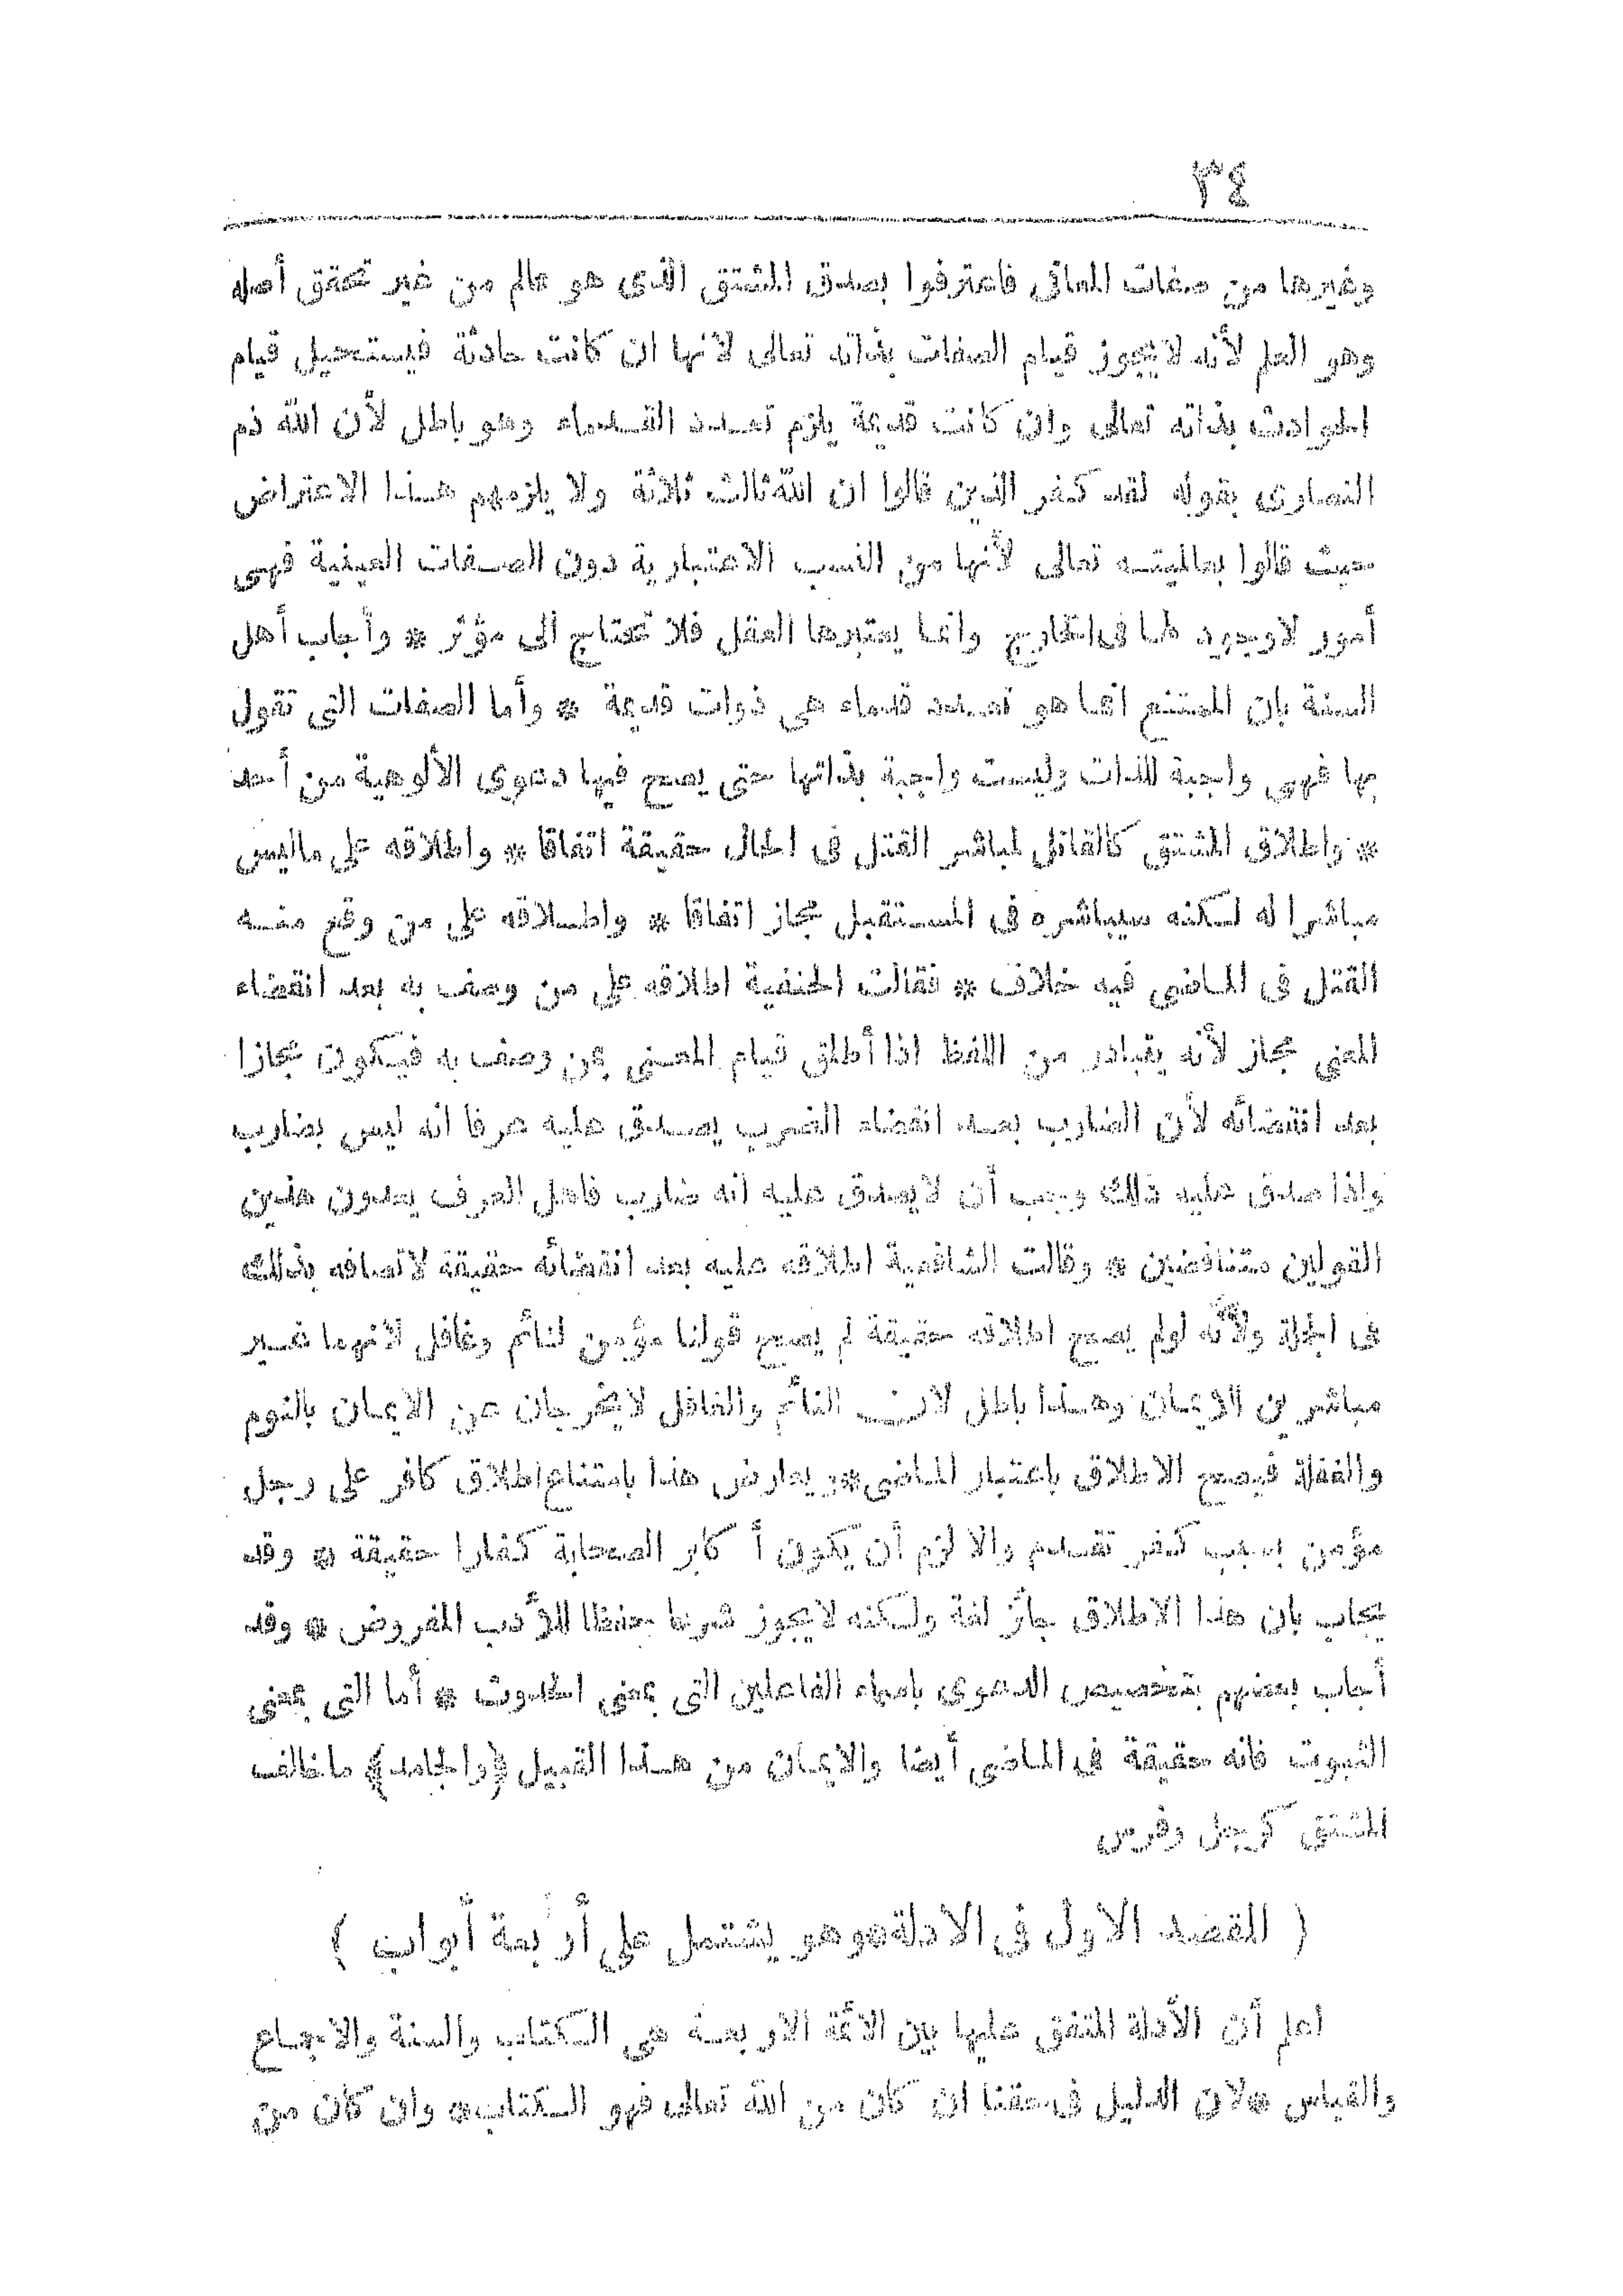 ٣٤
وغيرها من صفات المعانى فاعترفوا بصدق المشتق الذى هو عالم من غير تحقق أصله
وهو العلم لأنه لا يجوز قيام الصفات بذاته تعالى لأنها ان كانت حادثة فيستحيل قيام
الحوادث بذاته تعالى وان كانت قديمة يلزم تعدد القدماء وهو باطل لأن الله ذم
النصارى بقوله لقد كفر الذين قالوا ان الله ثالث ثلاثة ولا يلزمهم هذا الاعتراض
حيث قالوا بعالميته تعالى لأنها من النسب الاعتبارية دون الصفات العينية فهى
أمور لا وجود لها فى الخارج وانما يعتبرها العقل فلا تحتاج الى مؤثر * وأجاب أهل
السنة بان الممتنع انما هو تعدد قدماء هى ذوات قديمة * وأما الصفات التى تقول
بها فهى واجبة للذات وليست واجبة بذاتها حتى يصح فيها دعوى الألوهية من أحد
* واطلاق المشتق كالقاتل لمباشر القتل فى الحال حقيقة اتفاقا * واطلاقه على ماليس
مباشرا له لكنه سيباشره فى المستقبل مجاز اتفاقا * واطلاقه على من وقع منه
القتل فى الماضى فيه خلاف * فقالت الحنفية اطلاقه على من وصف به بعد انقضاء
المعنى مجاز لأنه يتبادر من اللفظ اذا أطلق قيام المعنى بمن وصف به فيكون مجازا
بعد انقضائه لأن الضارب بعد انقضاء الضرب يصدق عليه عرفا انه ليس بضارب
واذا صدق عليه ذلك وجب أن لا يصدق عليه انه ضارب فاهل العرف يعدون هذين
القولين متناقضين * وقالت الشافعية اطلاقه عليه بعد انقضائه حقيقة لاتصافه بذلك
فى الجملة ولأنه لولم يصح اطلاقه حقيقة لم يصح قولنا مؤمن لنائم وغافل لانهما غير
مباشرين الايمان وهذا باطل لان النائم والغافل لا يخرجان عن الايمان بالنوم
والغفلة فيصح الاطلاق باعتبار الماضى * ويعارض هذا بامتناع اطلاق كافر على رجل
مؤمن بسبب كفر تقدم والا لزم أن يكون أكابر الصحابة كفارا حقيقة * وقد
يجاب بان هذا الاطلاق جائز لغة ولكنه لا يجوز شرعا حفظا للأدب المفروض * وقد
أجاب بعضهم بتخصيص الدعوى باسماء الفاعلين التى بمعنى الحدوث * أما التى بمعنى
الثبوت فانه حقيقة فى الماضى أيضا والايمان من هذا القبيل (والجامد) ما خالف
المشتق كرجل وفرس
( المقصد الاول فى الادلة * وهو يشتمل على أربعة أبواب )
اعلم أن الأدلة المتفق عليها بين الائمة الاربعة هى الكتاب والسنة والاجماع
والقياس * لان الدليل فى حقنا ان كان من الله تعالى فهو الكتاب * وان كان من